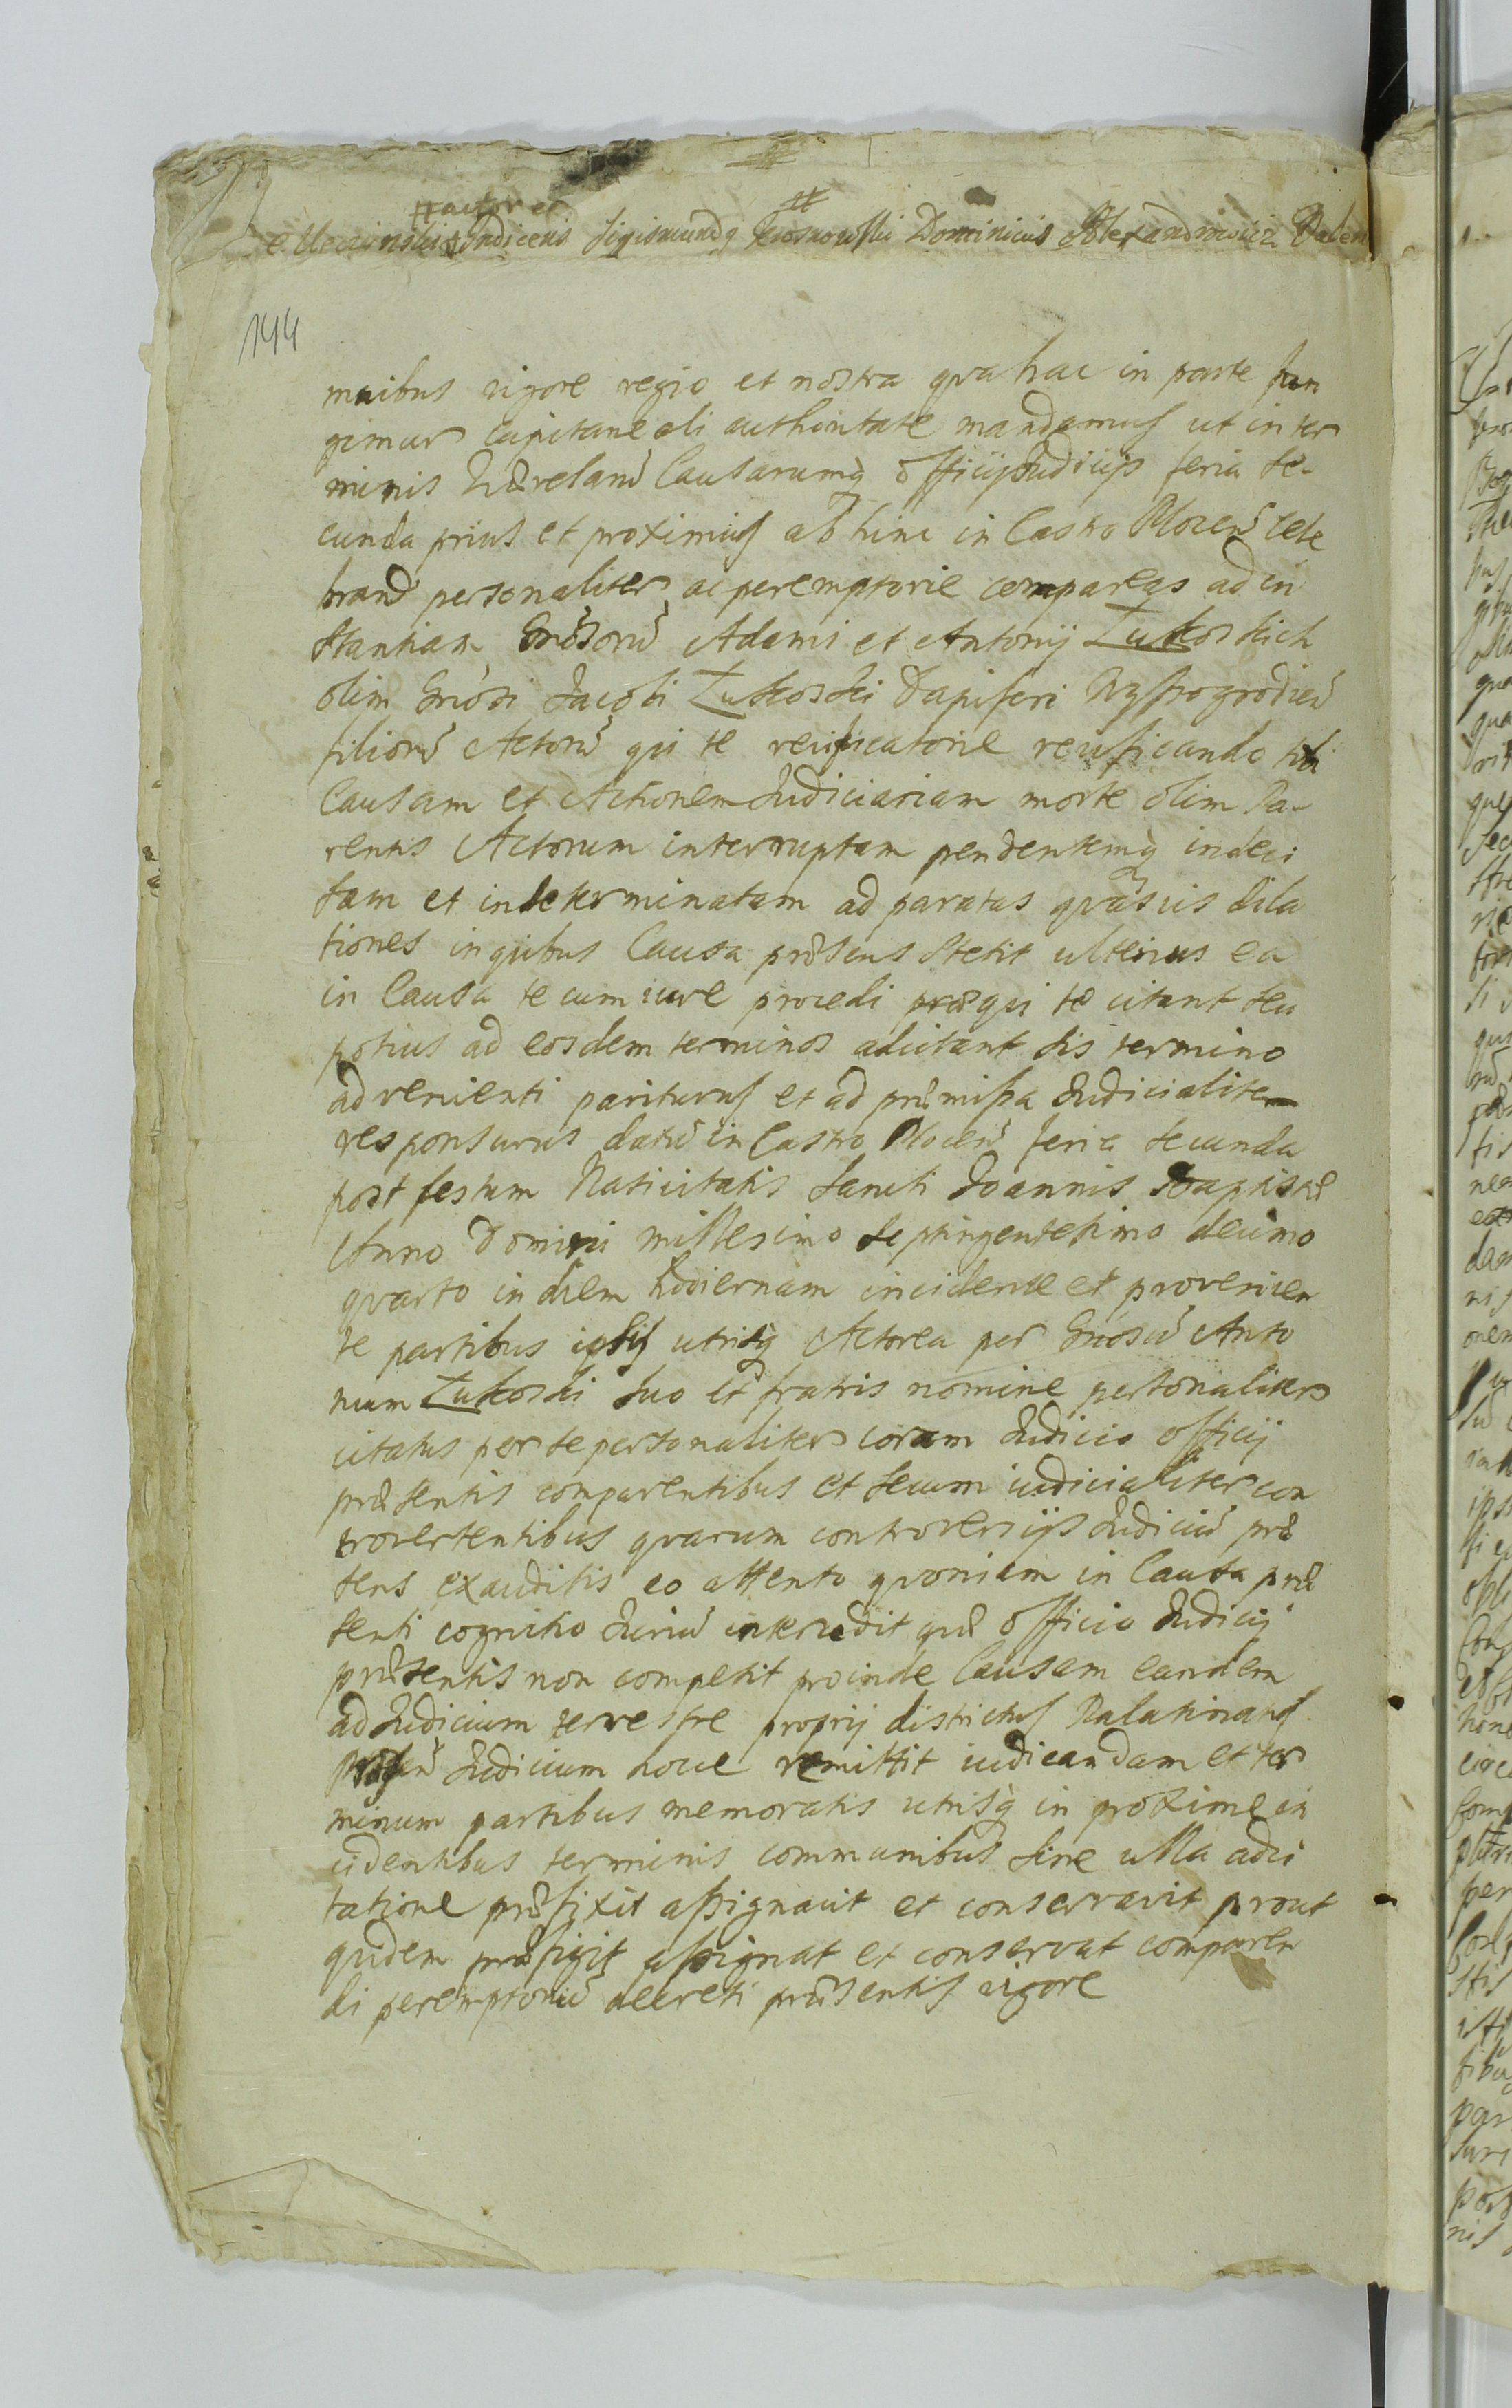 actores
Judicens Sigismundq Kosnowski Dominicus Alexandrowicz Valen
144
mnibus vigore regio et nostra qva hac in parte fun
gimur capitaneali authoritate mandamus ut in ter
minis Querelarũ Causarumq̀ officij Judicijs feria se-
cunda prius et proximius ab hinc in Castro Plocen̄ cele
brand personaliter ac peremptorie compareas ad in
stantiam Gn̄osorũ Adami et Antonij Zukoskich
olim Gn̄osi Jacobi Zukoski Dapiferi Wyszogrodien̄
filiorũ Actorũ qui te reussicatorie reussicando tibi
Causam et Actionem Judiciariam morte olim Pa-
rentis Actorum interruptam pendentemq̀ indeci
sam et indeterminatam ad paratas qvasuis dila
tiones in quibus Causa præsens stetit ulterius ea
in Causa tecum iure procedi præqui te citant seu
potius ad eosdem terminos adcitant sis termino
advenienti pariturus et ad præmissa Judicialiter
responsurus datũ in Castro Plocen̄ feria secunda
post festum Nativitatis Sancti Joannis Baptistæ
Anno Domini millesimo septingentesimo decimo
qvarto in diem hodiernam incidente et provenien
te partibus ipsis utrisq̀ Actorea per Gn̄osũ Anto
nium Zukoski suo et fratris nomine personaliter
citatus per se personaliter coram Judicio officij
præsentis comparentibus et secum iudicialiter con
trovertentibus qvarum controversijs Judiciũ præ
sens exauditis eo attento qvoniam in Causa præ
senti cognitio Juriũ intercedit quæ officio Judicij
præsentis non competit proinde Causam eandem
ad Judicium terrestre proprij districtus Palatinatus
Judicium hocce remittit iudicandam et ter
minum partibus memoratis utrisq̀ in proxime in
cidentibus terminis communibus sine ulla adci
tatione præfixit assignavit et conservavit prout
qvidem præfigit assignat et conservat comparen
di peremptoriũ decreti præsentis vigore